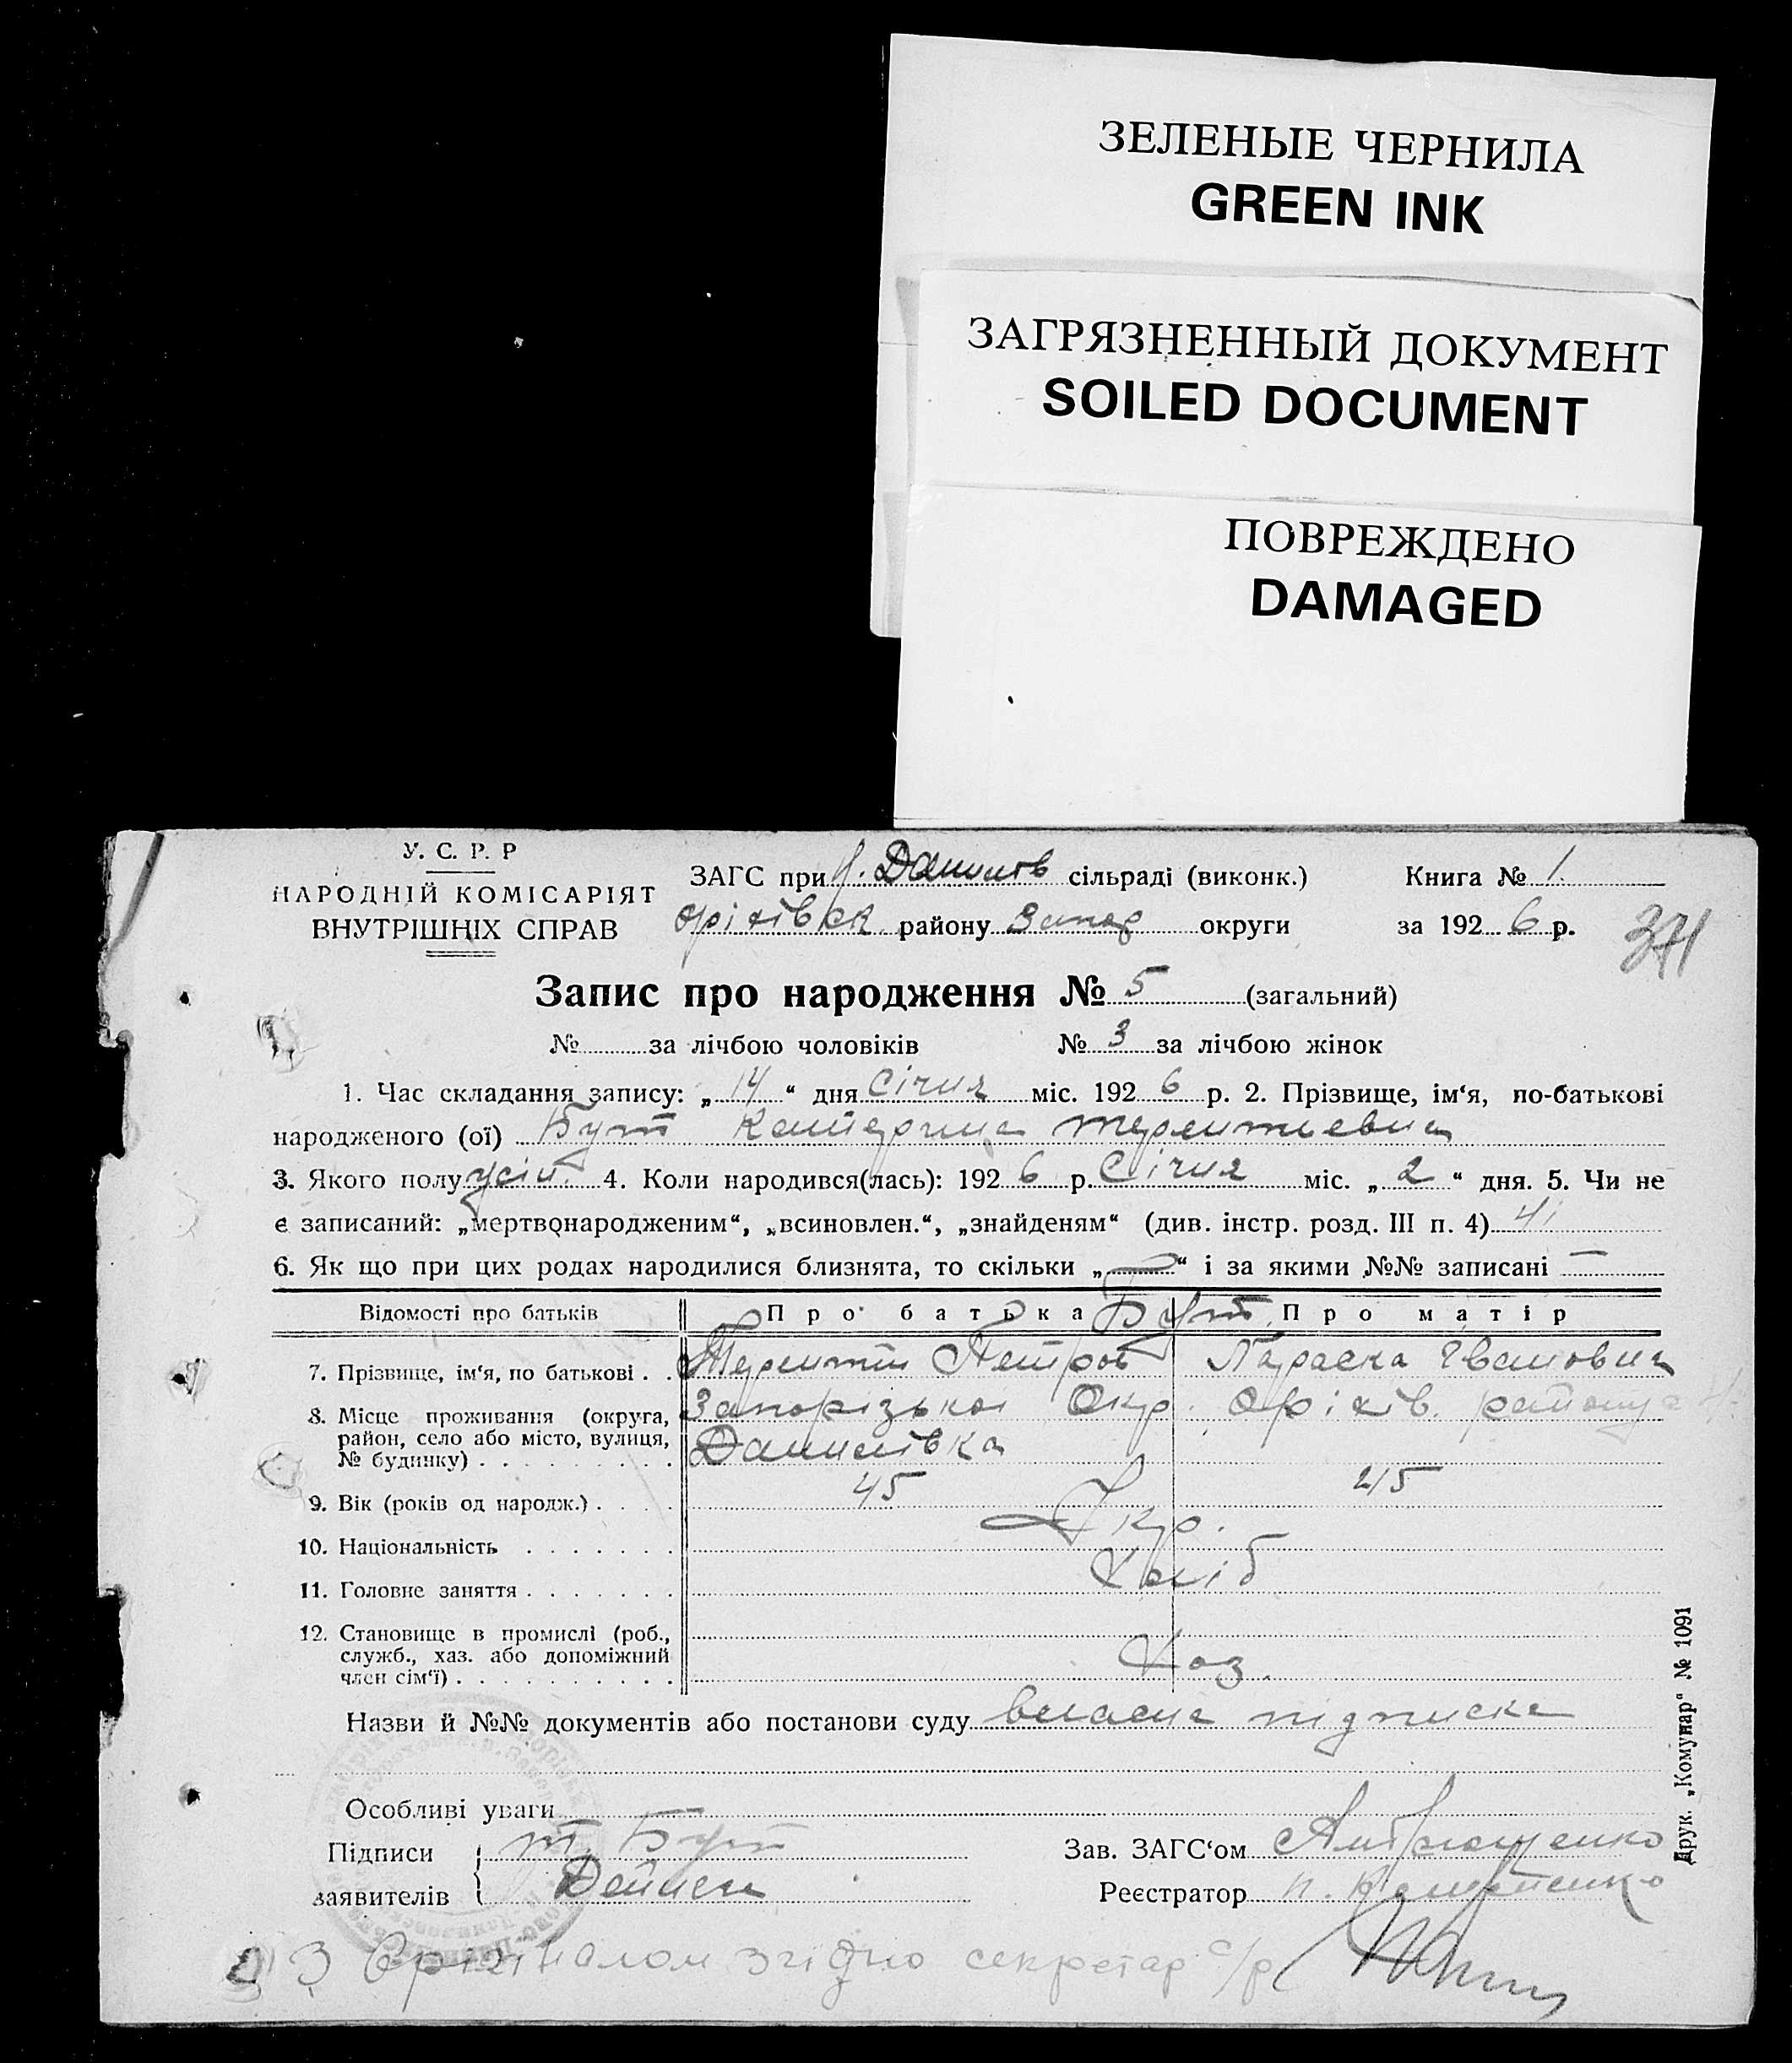 ЗЕЛЕНЫЕ ЧЕРНИЛА
GREEN INK
ЗАГРЯЗНЕННЫЙ ДОКУМЕНТ
SOILED DOCUMENT
ПОВРЕЖДЕНО
DAMAGED
У. С. Р. Р
НАРОДНІЙ КОМІСАРІЯТ
ВНУТРІШНІХ СПРАВ
ЗАГС при Данилів сільраді (виконк.)
Оріхівск району Запор округи
Книга № 1
за 192 6 р.
Запис про народження № 5 (загальний)
№ за лічбою чоловіків № 3 за лічбою жінок
1. Час складання запису: „ 14 “ дня Січня міс. 192 6 р. 2. Прізвище, ім‘я, по-батькові
народженого (ої) Бут Катерина Терентьевна
3. Якого полу 4. Коли народився(лась): 192 6 р. Січня міс. „ 2 “ дня. 5. Чи не
є записаний: „мертвонародженим“, „всиновлен.“, „знайденям“ (див. інстр. розд. III п. 4)
6. Як що при цих родах народилися близнята, то скільки „ — “ і за якими №№ записані —
Відомості про батьків Про батька Бут Про матір
7. Прізвище, ім‘я, по батькові . . Терентій Петров Параска Івановна
8. Місце проживання (округа, Запорізькоі Окр. Оріхів. району
район, село або місто, вулиця, Данилівка
№ будинку)
9. Вік (років од народж.) . . . . 45 45
10. Національність . . . . . . . Укр.
11. Головне заняття . . . . . . . Хліб
12. Становище в промислі (роб.,
служб., хаз. або допоміжний Хаз.
член сім‘ї)
Назви й №№ документів або постанови суду власна підписка
Особливі уваги
Підписи Т. Бут
заявителів
Зав. ЗАГС‘ом
Реєстратор
З Орігіналом згідно секретар с/р
Друк. „Комунар“ № 1091